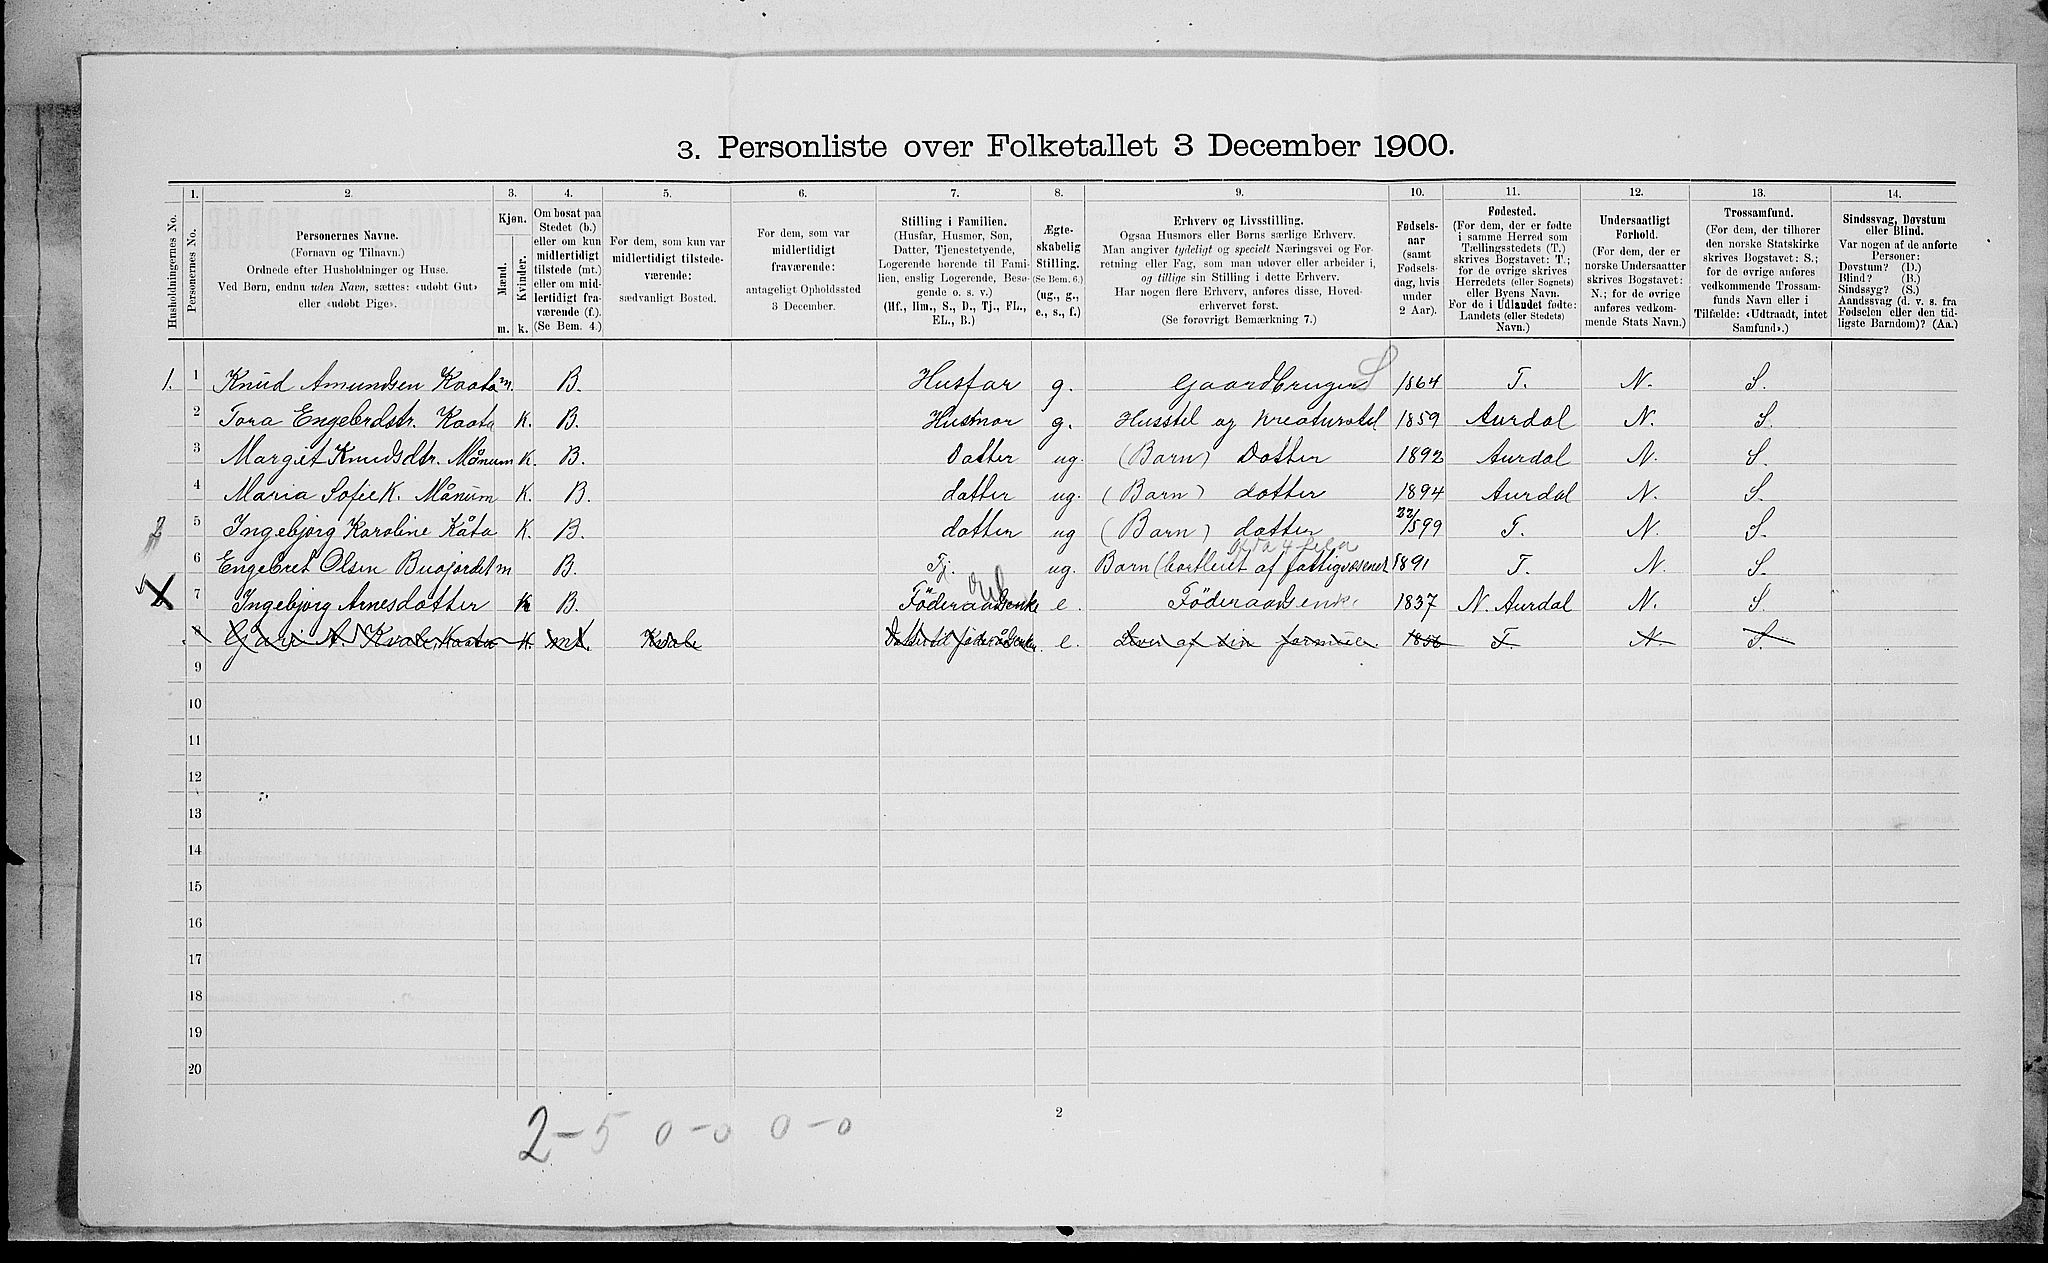 3. Personliste over Folketallet 3 December 1900.
Husholdningernes No.
1.
Personernes No.
2.
Personernes Navne.
(Fornavn og Tilnavn.)
Ordnede efter Husholdninger og Huse.
Ved Børn, endnu uden Navn, sættes: «udøbt Gut»
eller «udøbt Pige».
3.
Kjøn.
Mænd.
Kvinder.
m. k.
4.
Om bosat paa
Stedet (b.)
eller om kun
midlertidigt
tilstede (mt.)
eller om mid-
lertidigt fra-
værende (f.).
(Se Bem. 4.)
5.
For dem, som kun var
midlertidigt tilstede-
værende:
sædvanligt Bosted.
6.
For dem, som var
midlertidigt
fraværende:
antageligt Opholdssted
3 December.
7.
Stilling i Familien.
(Husfar, Husmor, Søn,
Datter, Tjenestetyende,
Logerende hørende til Fami-
lien, enslig Logerende, Besø-
gende o. s. v.)
(Hf., Hm., S., D., Tj., FL.,
EL., B.)
8.
Ægte-
skabelig
Stilling.
(Se Bem. 6.)
(ug., g.,
e., s., f.)
9.
Erhverv og Livsstilling.
Ogsaa Husmors eller Børns særlige Erhverv.
Man angiver tydeligt og specielt Næringsvei og For-
retning eller Fag, som man udøver eller arbeider i,
og tillige sin Stilling i dette Erhverv.
Har nogen flere Erhverv, anføres disse, Hoved-
erhvervet først.
(Se forøvrigt Bemærkning 7.)
10.
Fødsels-
aar
(samt
Fødsels-
dag, hvis
under
2 Aar).
11.
Fødested.
(For dem, der er fødte
i samme Herred som
Tællingsstedets (T.)
skrives Bogstavet: T.;
for de øvrige skrives
Herredets (eller Sognets)
eller Byens Navn.
For de i Udlandet fødte:
Landets (eller Stedets)
Navn.)
12.
Undersaatligt
Forhold.
(For dem, der er
norske Undersaatter
skrives Bogstavet:
N.; for de øvrige
anføres vedkom-
mende Stats Navn.)
13.
Trossamfund.
(For dem, der tilhører
den norske Statskirke
skrives Bogstavet: S.;
for de øvrige anføres
vedkommende Trossam-
funds Navn eller i
Tilfælde: «Udtraadt, intet
Samfund».)
14.
Sindssvag, Døvstum
eller Blind.
Var nogen af de anførte
Personer:
Døvstum? (D.)
Blind? (B.)
Sindssyg? (S.)
Aandssvag (d. v. s. fra
Fødselen eller den tid-
ligste Barndom)? (Aa.)
1. 1 Knud Amundsen Kaata m. B. Husfar g. Gaardbruger S 1864 T. N. S.
2 Tora Engebrdstr. Kaata K. B. Husmor g. Husstel og Kreaturstel 1859 Aurdal N. S.
3 Margit Knudsdtr. Månum K. B. Datter ug. (Barn) Datter 1892 Aurdal N. S.
4 Maria Sofie K. Månum K. B. datter ug. (Barn) datter 1894 Aurdal N. S.
2 5 Ingebjørg Karoline Kåta K. B. datter ug (Barn) datter 22/5 99 T. N. S.
6 Engebret Olsen Buojordet m B. Tj. ug. Barn (bortleiet af fattigvæsenet 1891 T. N. S.
7 Ingebjørg Arnesdatter K B. Føderaadsenke e. Føderaadsenke 1837 N. Aurdal N. S.
8 Gjari A. Kvale, Kaata K. mt. Kvale føderådsenke. e. Lever af sin formue. 1856 T. N. S.
9
10
11
12
13
14
15
16
17
18
19
20
2
2-5 0-0 0-0